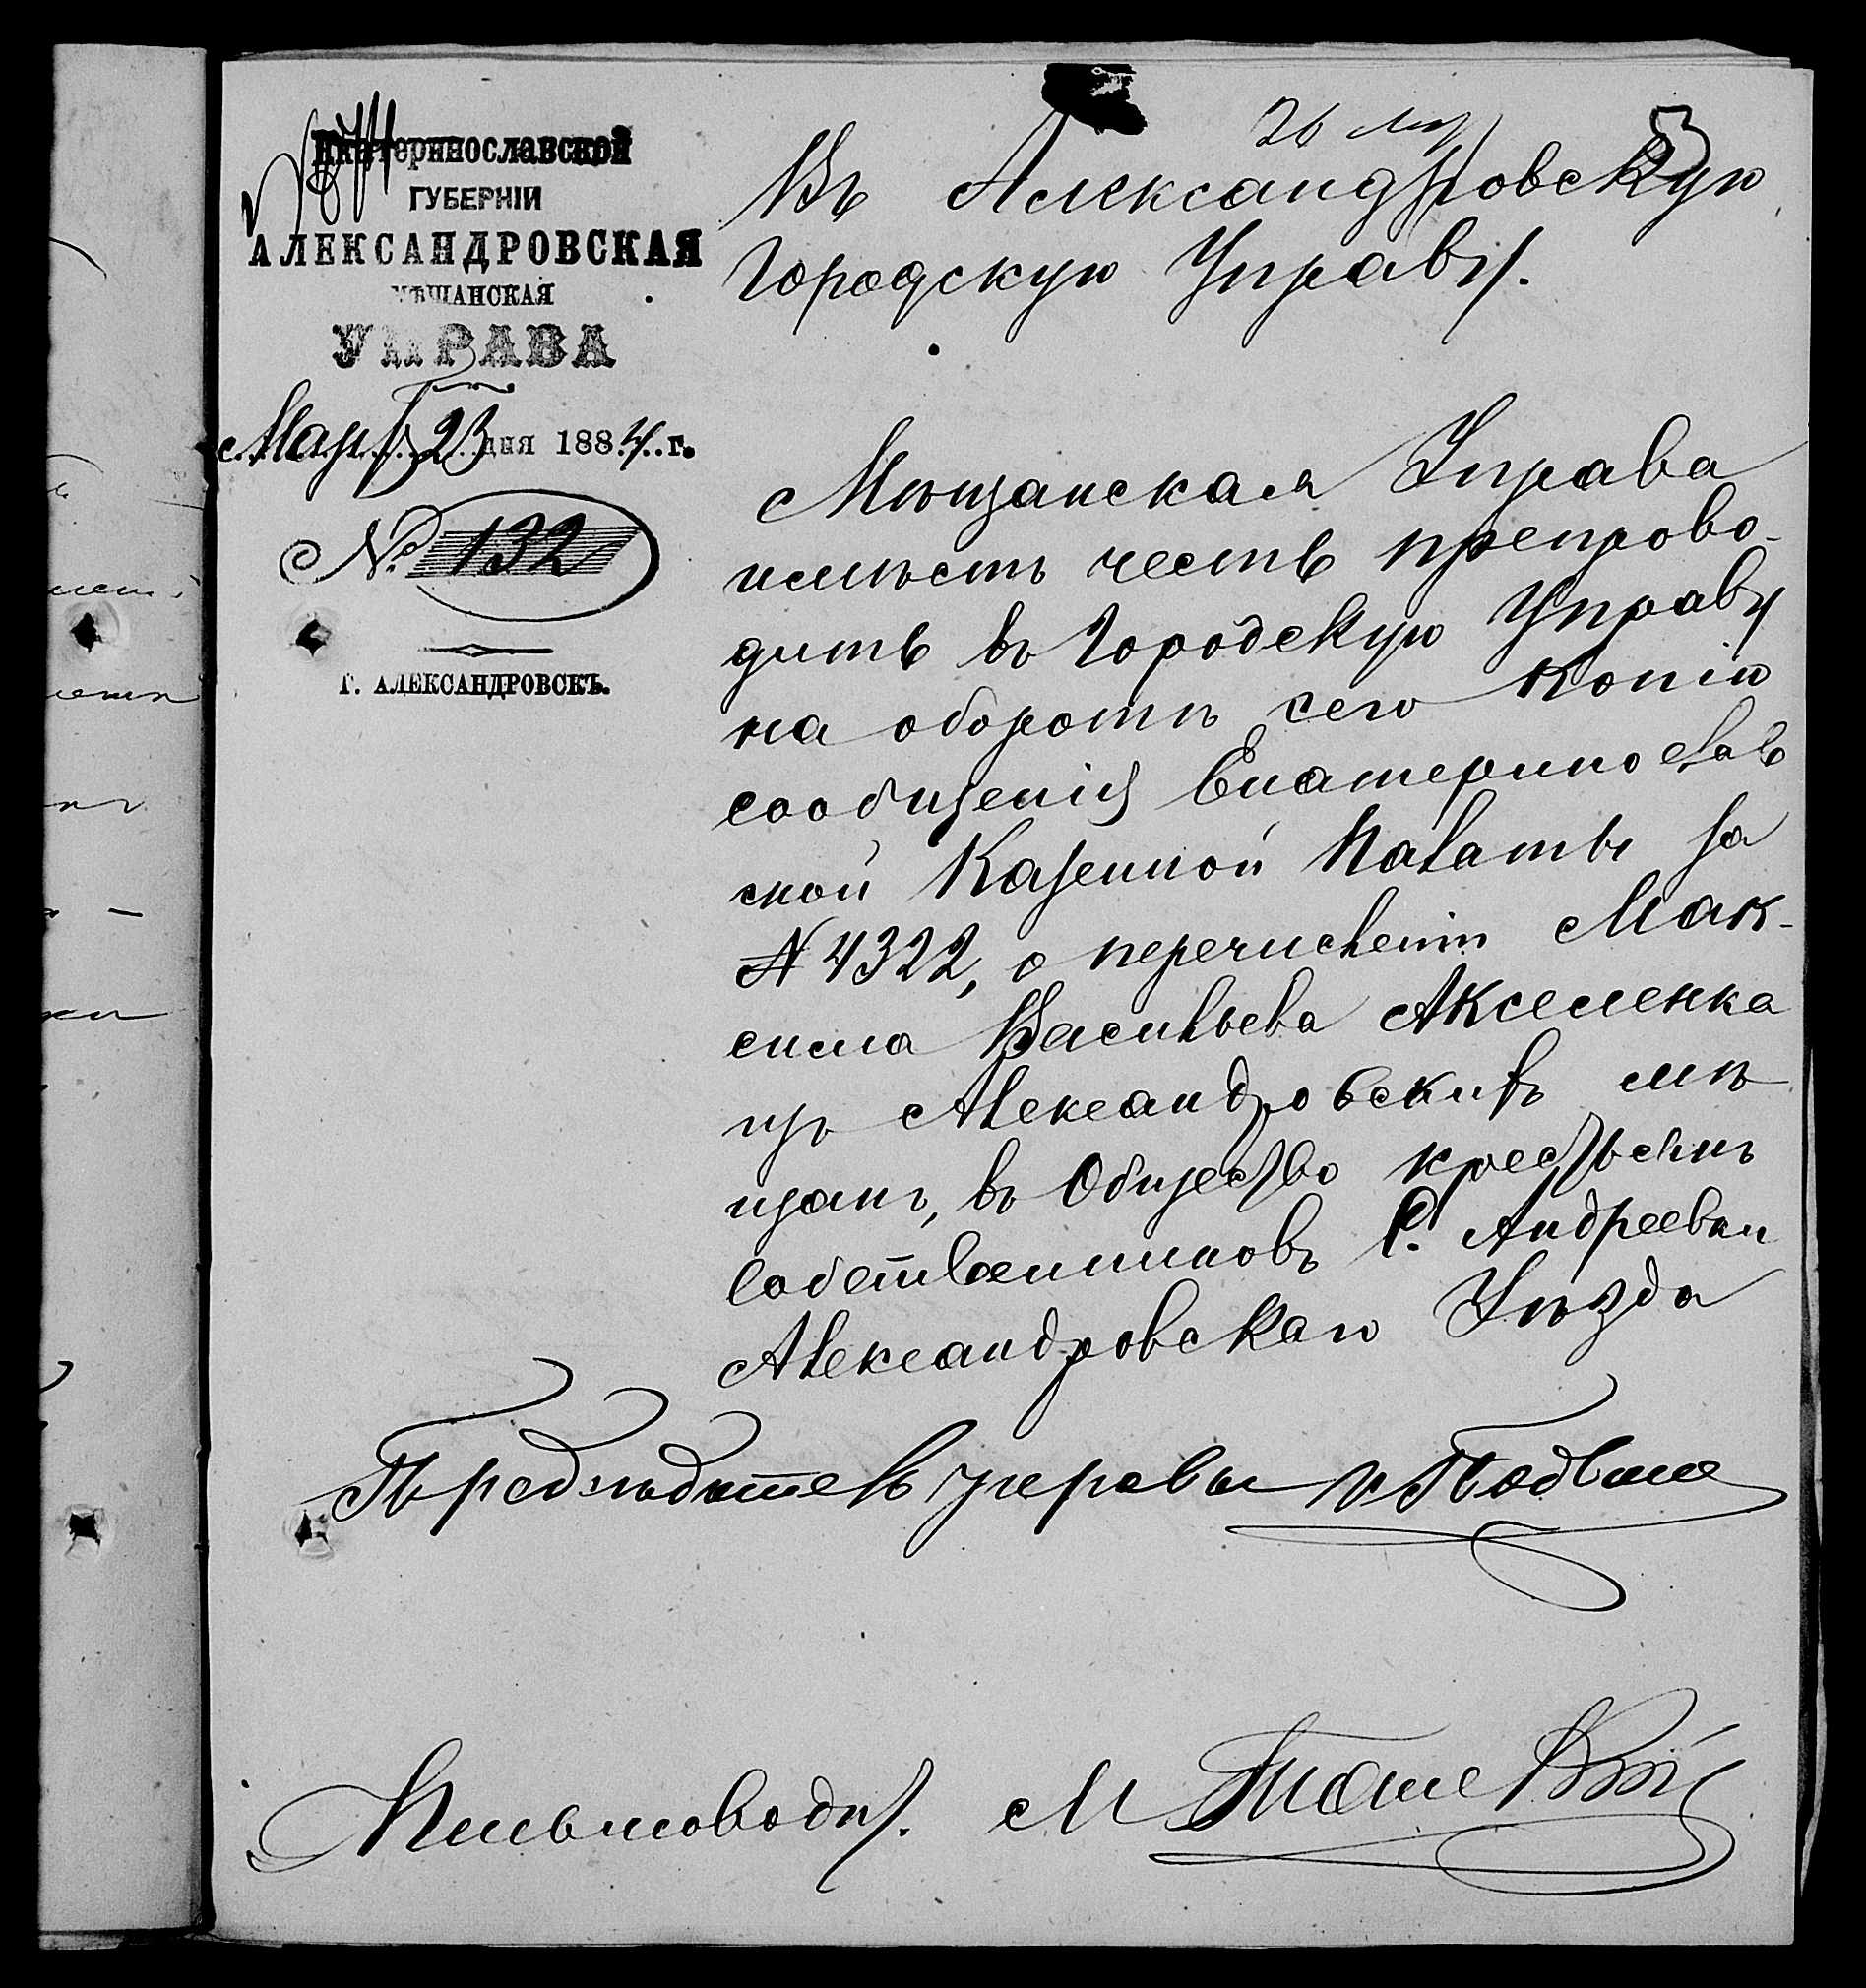 Екатеринославской
ГУБЕРНІИ
АЛЕКСАНДРОВСКАЯ
МѢЩАНСКАЯ
УПРАВА
Март 23 дня 1884 г.
№ 132
Г. АЛЕКСАНДРОВСКЪ.
26
Въ Александровскую
Городскую Управу.
Мѣщанская Управа
имѣетъ честь препрово-
дить въ Городскую Управу
на оборотѣ сего копію
сообщенія Екатеринослав
ской Казенной Палаты за
№ 4322, о перечисленіи Мак-
сима Васильева Аксеменка
изъ Александровскихъ мѣ
щанъ, въ Общество крестьянъ
собственниковъ С. Андреевки
Александровскаго Уѣзда
Предсѣдатель управы
Письмовод. М